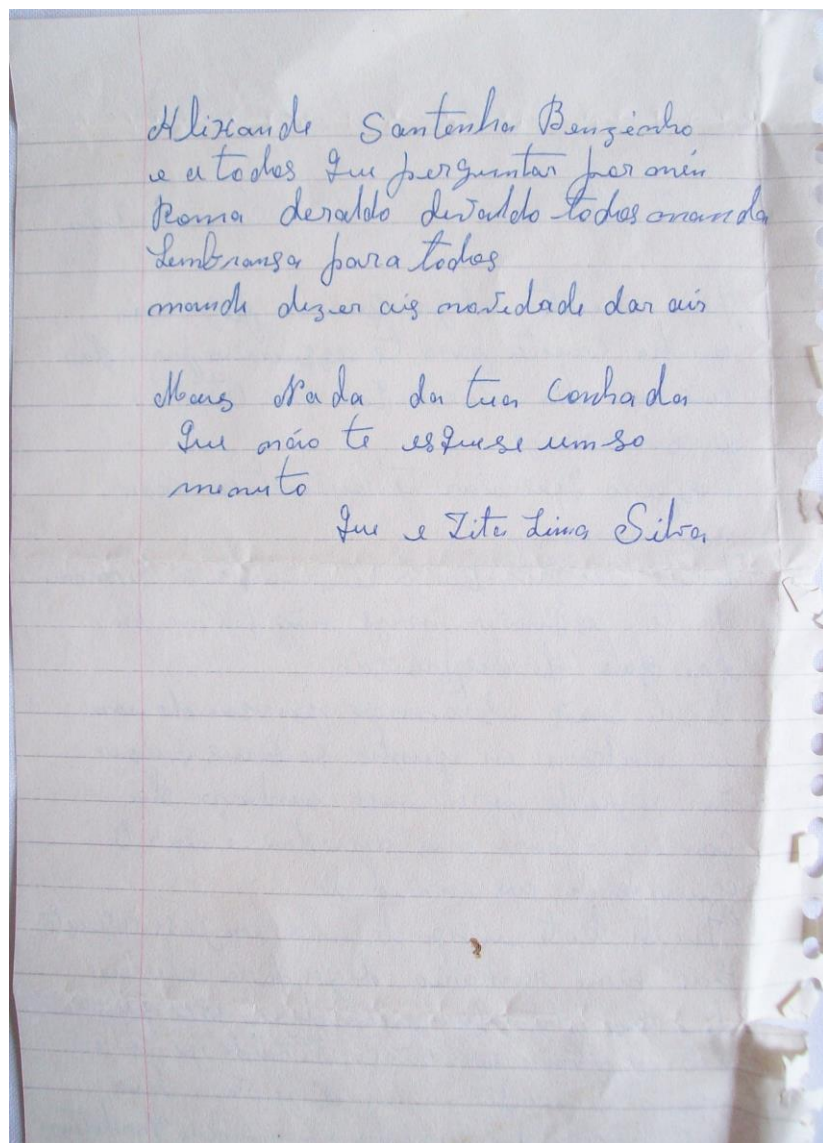 Alixande Santenha Benzinho
e a todos que perguntar por mén
Roma deraldo devaldo todos manda
Lembransa para todos
mande dizer ais novidade dar ais
Mais Nada da tua Conhada
Que não te esquese um so
menuto
Que e Zita Lima Silva